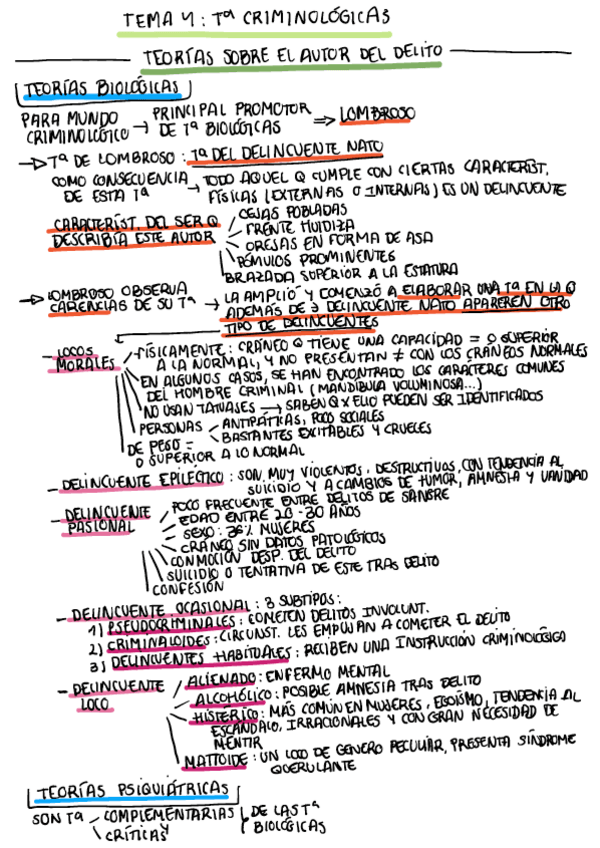 TEMA 4: Tª CRIMINOLÓGICAS
TEORÍAS SOBRE EL AUTOR DEL DELITO
TEORÍAS BIOLÓGICAS
PARA MUNDO CRIMINOLÓGICO → PRINCIPAL PROMOTOR DE Tª BIOLÓGICAS ⇒ LOMBROSO
→ Tª DE LOMBROSO: Tª DEL DELINCUENTE NATO
COMO CONSECUENCIA DE ESTA Tª → TODO AQUEL Q CUMPLE CON CIERTAS CARACTERÍST.
FÍSICAS (EXTERNAS O INTERNAS) ES UN DELINCUENTE
CARACTERÍST. DEL SER Q DESCRIBÍA ESTE AUTOR
CEJAS POBLADAS
FRENTE HUIDIZA
OREJAS EN FORMA DE ASA
PÓMULOS PROMINENTES
BRAZADA SUPERIOR A LA ESTATURA
→ LOMBROSO OBSERVA CARENCIAS DE SU Tª → LA AMPLIÓ Y COMENZÓ A ELABORAR UNA Tª EN LA Q
ADEMÁS DE DELINCUENTE NATO APARECEN OTRO
TIPO DE DELINCUENTES
- LOCOS MORALES
FÍSICAMENTE: CRÁNEO Q TIENE UNA CAPACIDAD = O SUPERIOR
A LA NORMAL, Y NO PRESENTAN ≠ CON LOS CRÁNEOS NORMALES
EN ALGUNOS CASOS, SE HAN ENCONTRADO LOS CARACTERES COMUNES
DEL HOMBRE CRIMINAL (MANDÍBULA VOLUMINOSA...)
NO USAN TATUAJES → SABEN Q X ELLO PUEDEN SER IDENTIFICADOS
PERSONAS
ANTIPÁTICAS, POCO SOCIALES
BASTANTES EXCITABLES Y CRUELES
DE PESO =
O SUPERIOR A LO NORMAL
- DELINCUENTE EPILÉCTICO: SON MUY VIOLENTOS, DESTRUCTIVOS, CON TENDENCIA AL
SUICIDIO Y A CAMBIOS DE HUMOR, AMNESIA Y VANIDAD
- DELINCUENTE PASIONAL
POCO FRECUENTE ENTRE DELITOS DE SANGRE
EDAD ENTRE 20-30 AÑOS
SEXO: 36% MUJERES
CRÁNEO SIN DATOS PATOLÓGICOS
CONMOCIÓN DESP. DEL DELITO
SUICIDIO O TENTATIVA DE ESTE TRAS DELITO
CONFESIÓN
- DELINCUENTE OCASIONAL: 3 SUBTIPOS:
1) PSEUDOCRIMINALES: COMETEN DELITOS INVOLUNT.
2) CRIMINALOIDES: CIRCUNST. LES EMPUJAN A COMETER EL DELITO
3) DELINCUENTES HABITUALES: RECIBEN UNA INSTRUCCIÓN CRIMINOLÓGICA
- DELINCUENTE LOCO
ALIENADO: ENFERMO MENTAL
ALCOHÓLICO: POSIBLE AMNESIA TRAS DELITO
HISTÉRICO: MÁS COMÚN EN MUJERES, EGOÍSMO, TENDENCIA AL
ESCÁNDALO, IRRACIONALES Y CON GRAN NECESIDAD DE
MENTIR
MATTOIDE: UN LOCO DE GÉNERO PECULIAR, PRESENTA SÍNDROME
QUERULANTE
TEORÍAS PSIQUIÁTRICAS
SON Tª
COMPLEMENTARIAS
Y
CRÍTICAS
DE LAS Tª
BIOLÓGICAS